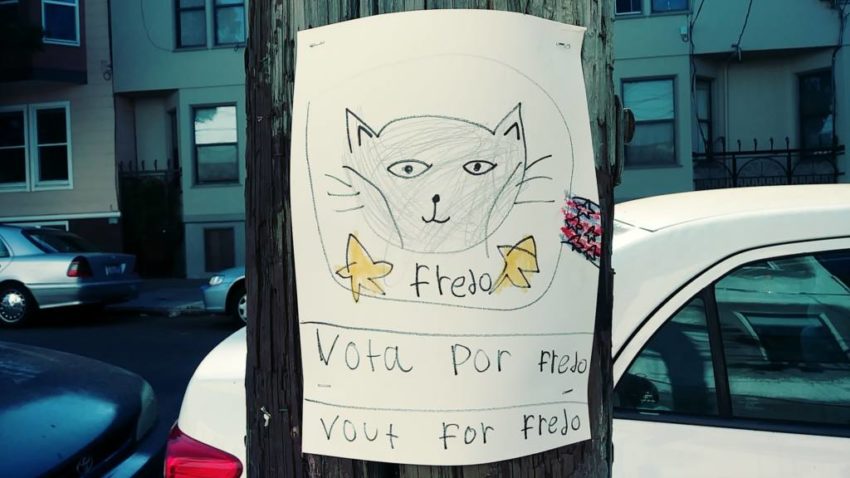 fredo
Vota por fredo
vout for fredo